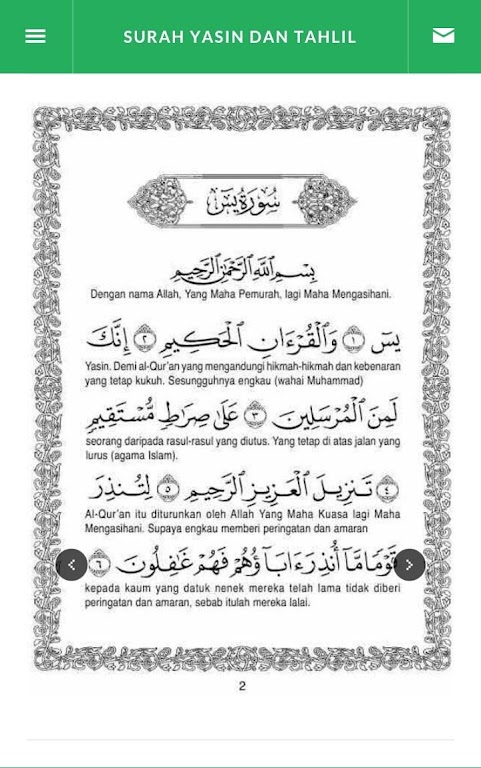 SURAH YASIN DAN TAHLIL
سُورَةُ يسٓ
بِسْمِ ٱللَّهِ ٱلرَّحْمَٰنِ ٱلرَّحِيمِ
Dengan nama Allah, Yang Maha Pemurah, lagi Maha Mengasihani.
يسٓ ١ وَٱلْقُرْءَانِ ٱلْحَكِيمِ ٢ إِنَّكَ
Yasin. Demi al-Qur'an yang mengandungi hikmah-hikmah dan kebenaran
yang tetap kukuh. Sesungguhnya engkau (wahai Muhammad)
لَمِنَ ٱلْمُرْسَلِينَ ٣ عَلَىٰ صِرَٰطٍ مُّسْتَقِيمٍ
seorang daripada rasul-rasul yang diutus. Yang tetap di atas jalan yang
lurus (agama Islam).
٤ تَنزِيلَ ٱلْعَزِيزِ ٱلرَّحِيمِ ٥ لِتُنذِرَ
Al-Qur'an itu diturunkan oleh Allah Yang Maha Kuasa lagi Maha
Mengasihani. Supaya engkau memberi peringatan dan amaran
قَوْمًا مَّآ أُنذِرَ ءَابَآؤُهُمْ فَهُمْ غَٰفِلُونَ ٦
kepada kaum yang datuk nenek mereka telah lama tidak diberi
peringatan dan amaran, sebab itulah mereka lalai.
2